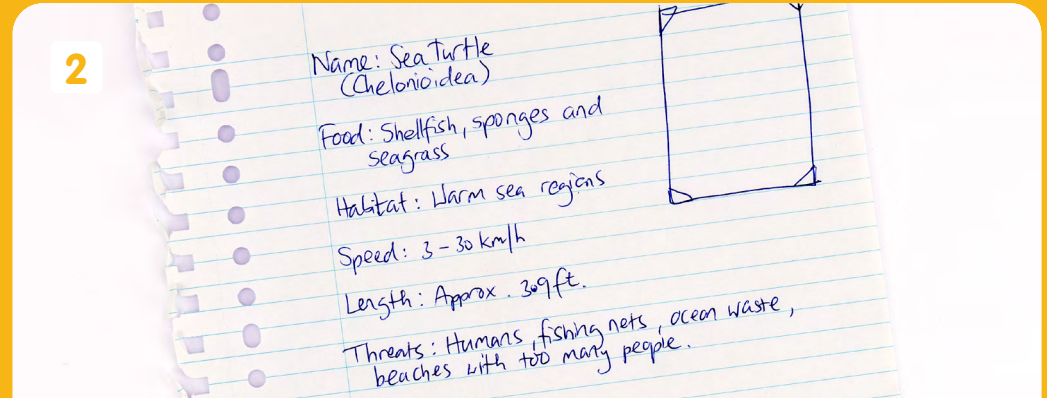 2
Name: Sea Turtle
(Chelonioidea)
Food: Shellfish, sponges and
seagrass
Habitat: Warm sea regions
Speed: 3 - 30 km/h
Length: Approx. 3.9ft.
Threats: Humans, fishing nets, ocean waste,
beaches with too many people.